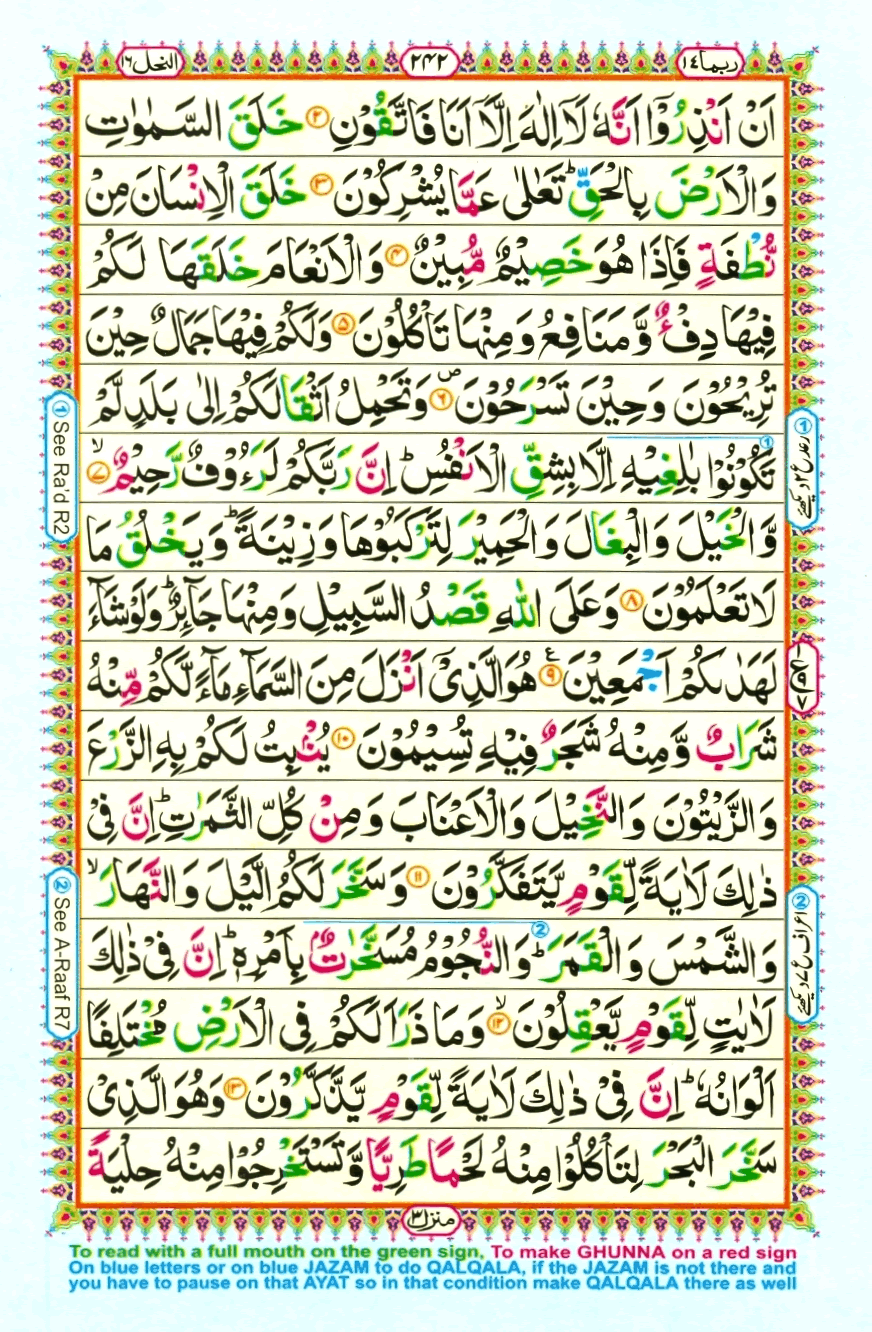 النحل ١٦
٢٤٢
ربما ١٤
اَنْ اَنْذِرُوْۤا اَنَّهٗ لَاۤ اِلٰهَ اِلَّاۤ اَنَا فَاتَّقُوْنِ ۝۲ خَلَقَ السَّمٰوٰتِ
وَالْاَرْضَ بِالْحَقِّ ؕ تَعٰلٰى عَمَّا يُشْرِكُوْنَ ۝۳ خَلَقَ الْاِنْسَانَ مِنْ
نُّطْفَةٍ فَاِذَا هُوَ خَصِيْمٌ مُّبِيْنٌ ۝۴ وَالْاَنْعَامَ خَلَقَهَا لَكُمْ
فِيْهَا دِفْءٌ وَّمَنَافِعُ وَمِنْهَا تَاْكُلُوْنَ ۝۵ وَلَكُمْ فِيْهَا جَمَالٌ حِيْنَ
تُرِيْحُوْنَ وَحِيْنَ تَسْرَحُوْنَ ۝۶ وَتَحْمِلُ اَثْقَالَكُمْ اِلٰى بَلَدٍ لَّمْ
تَكُوْنُوْا بٰلِغِيْهِ اِلَّا بِشِقِّ الْاَنْفُسِ ؕ اِنَّ رَبَّكُمْ لَرَءُوْفٌ رَّحِيْمٌ ۝۷
وَّالْخَيْلَ وَالْبِغَالَ وَالْحَمِيْرَ لِتَرْكَبُوْهَا وَزِيْنَةً ؕ وَيَخْلُقُ مَا
لَا تَعْلَمُوْنَ ۝۸ وَعَلَى اللّٰهِ قَصْدُ السَّبِيْلِ وَمِنْهَا جَآئِرٌ ؕ وَلَوْ شَآءَ
لَهَدٰىكُمْ اَجْمَعِيْنَ ۝۹ هُوَ الَّذِىْۤ اَنْزَلَ مِنَ السَّمَآءِ مَآءً لَّكُمْ مِّنْهُ
شَرَابٌ وَّمِنْهُ شَجَرٌ فِيْهِ تُسِيْمُوْنَ ۝۱۰ يُنْۢبِتُ لَكُمْ بِهِ الزَّرْعَ
وَالزَّيْتُوْنَ وَالنَّخِيْلَ وَالْاَعْنَابَ وَمِنْ كُلِّ الثَّمَرٰتِ ؕ اِنَّ فِىْ
ذٰلِكَ لَاٰيَةً لِّقَوْمٍ يَّتَفَكَّرُوْنَ ۝۱۱ وَسَخَّرَ لَكُمُ الَّيْلَ وَالنَّهَارَ ۙ
وَالشَّمْسَ وَالْقَمَرَ ؕ وَالنُّجُوْمُ مُسَخَّرٰتٌۢ بِاَمْرِهٖ ؕ اِنَّ فِىْ ذٰلِكَ
لَاٰيٰتٍ لِّقَوْمٍ يَّعْقِلُوْنَ ۝۱۲ وَمَا ذَرَاَ لَكُمْ فِى الْاَرْضِ مُخْتَلِفًا
اَلْوَانُهٗ ؕ اِنَّ فِىْ ذٰلِكَ لَاٰيَةً لِّقَوْمٍ يَّذَّكَّرُوْنَ ۝۱۳ وَهُوَ الَّذِىْ
سَخَّرَ الْبَحْرَ لِتَاْكُلُوْا مِنْهُ لَحْمًا طَرِيًّا وَّتَسْتَخْرِجُوْا مِنْهُ حِلْيَةً
① See Ra'd R2
① رعد ع ۲ دیکھئے
② See A-Raaf R7
② اعراف ع ۷ دیکھئے
منزل ٣
To read with a full mouth on the green sign, To make GHUNNA on a red sign
On blue letters or on blue JAZAM to do QALQALA, if the JAZAM is not there and
you have to pause on that AYAT so in that condition make QALQALA there as well